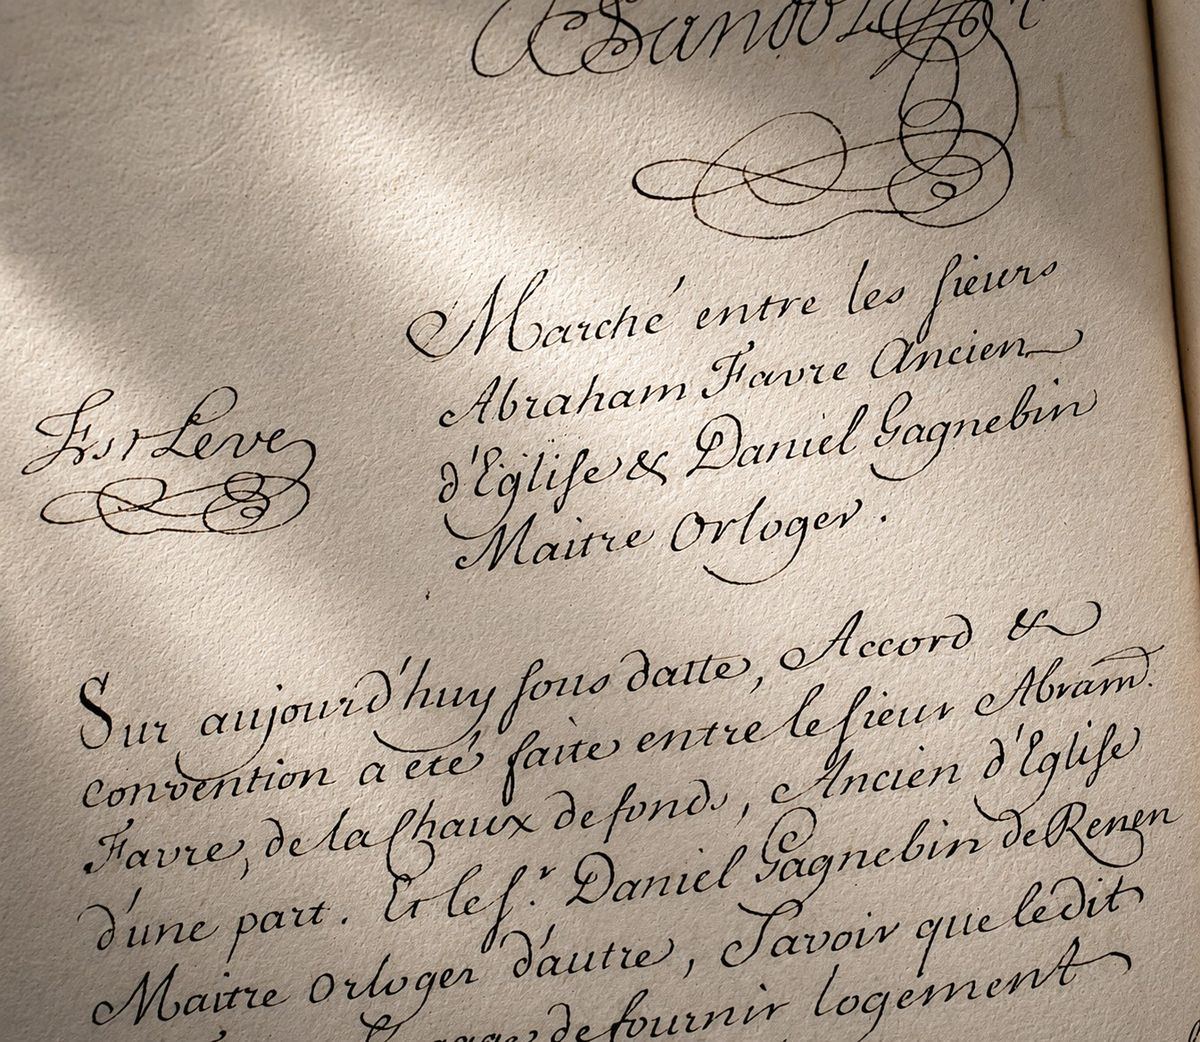 Sandoz
Marché entre les sieurs
Abraham Favre Ancien
d'Eglise & Daniel Gagnebin
Maitre Orloger.
Est Levé
Sur aujourd'huy sous datte, Accord &
convention a été faite entre le sieur Abram
Favre, de la Chaux de fonds, Ancien d'Eglise
d'une part. Et le sr. Daniel Gagnebin de Renen
Maitre Orloger d'autre, Savoir que ledit
de fournir logement